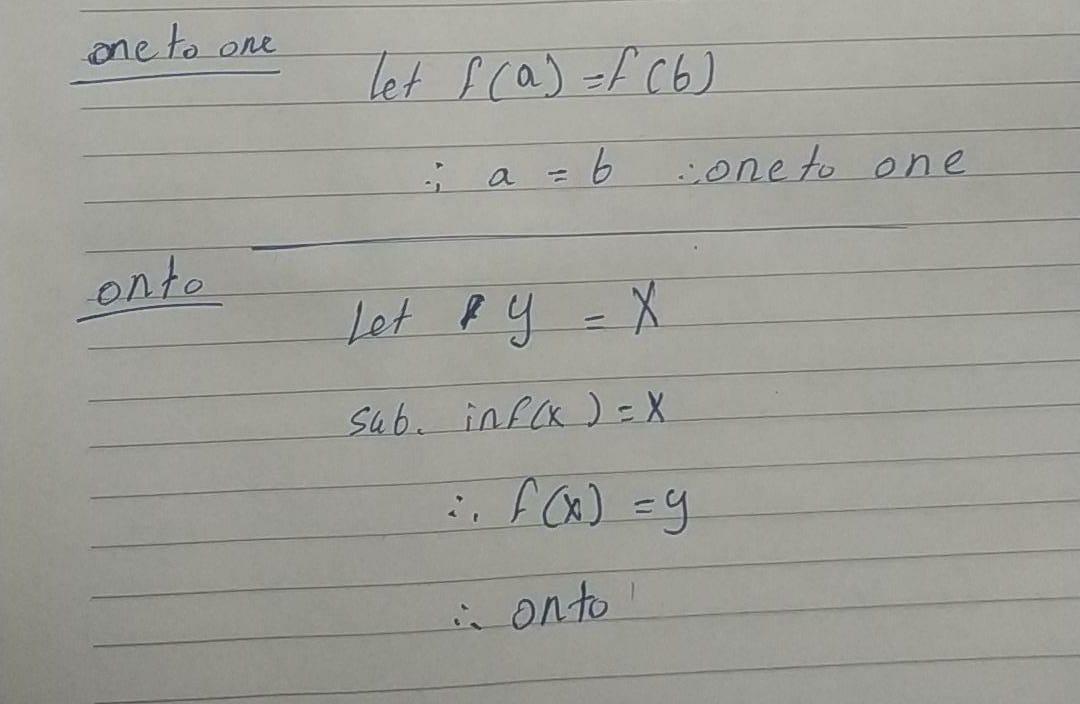 one to one
let f(a) = f(b)
∴ a = b ∴ one to one
onto
Let y = x
sub. in f(x) = x
∴ f(x) = y
∴ onto